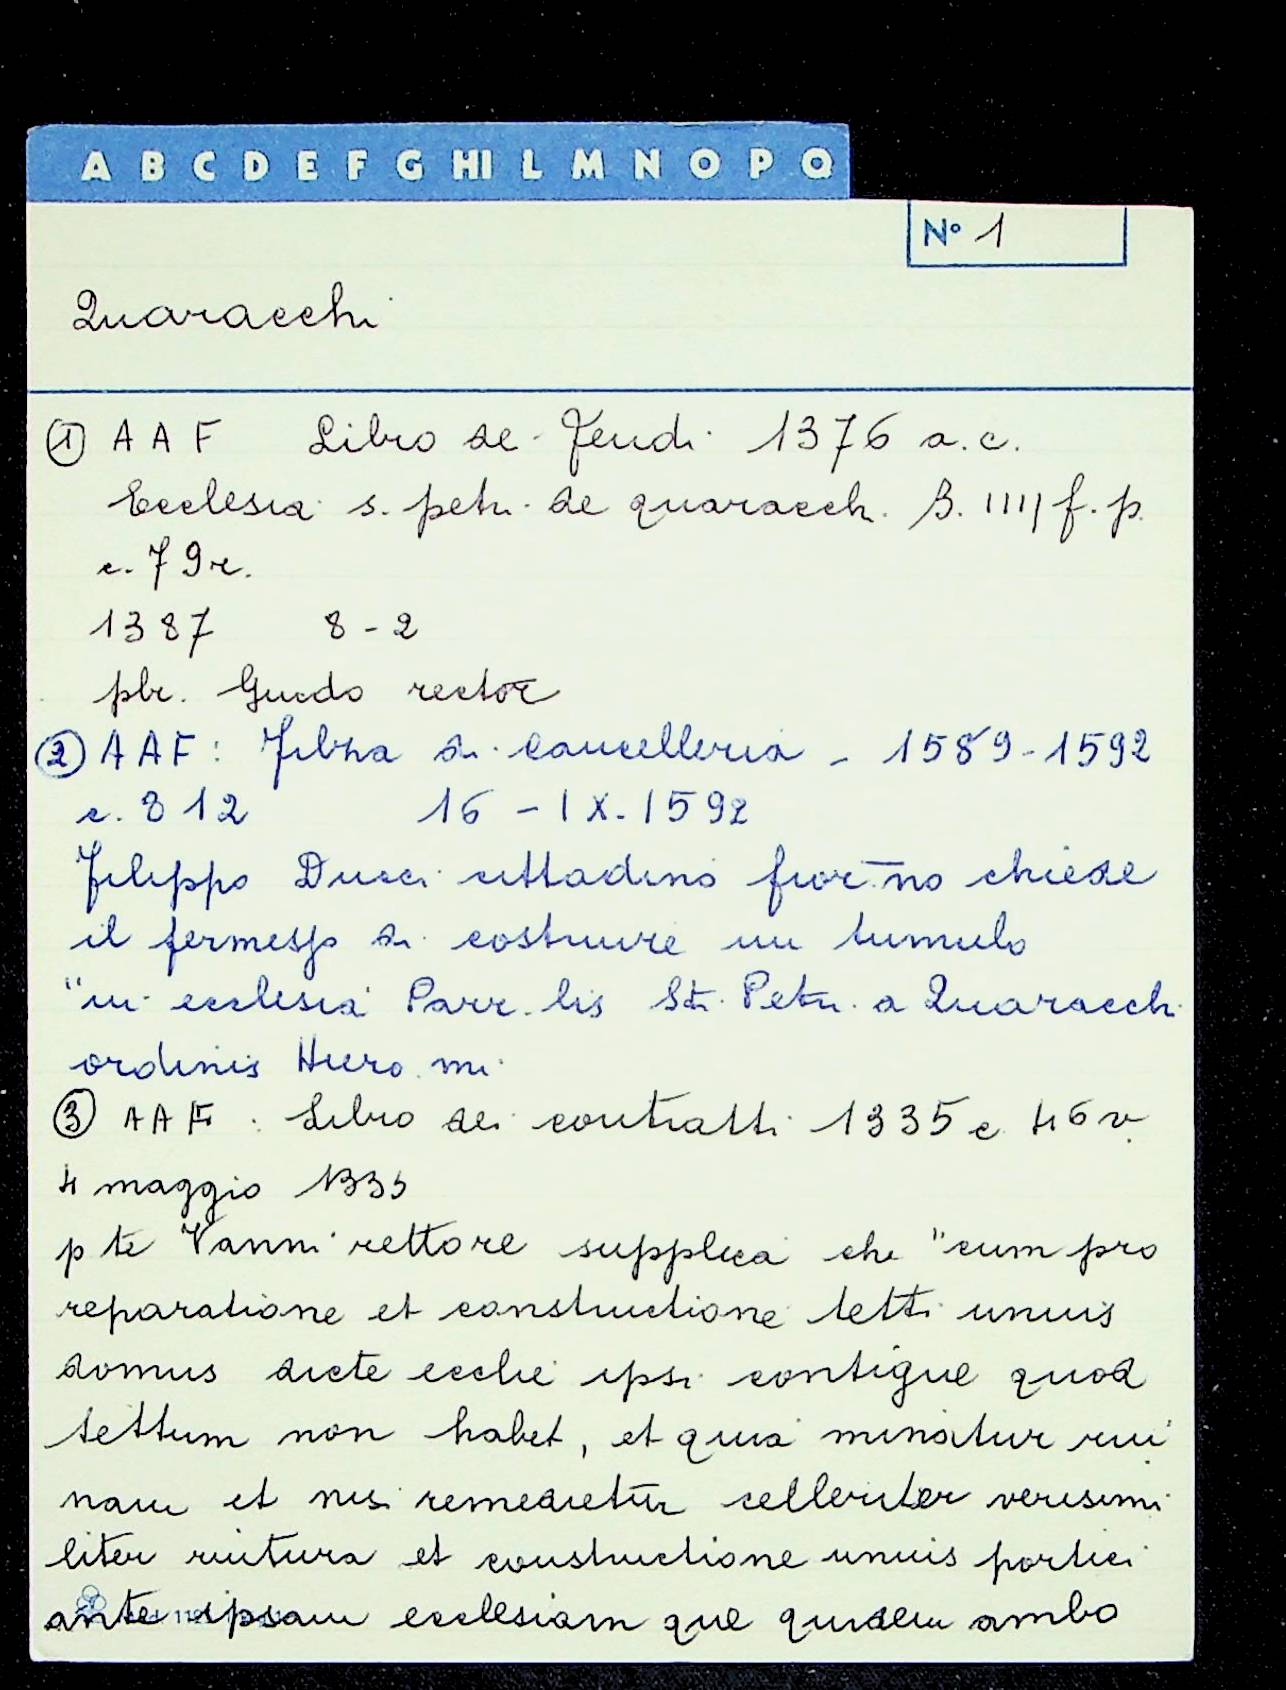 A B C D E F G HI L M N O P Q
N° 1
Quaracchi
① A A F Libro de Feudi 1376 a.c.
Ecclesia s. petri de quaracch. B. IIII f. p.
c. 79r.
1387 8-2
pbr. Guido rector
② A A F : Filza di cancelleria - 1589-1592
c. 812 16 - IX. 1592
Filippo Ducci cittadino fior.no chiede
il permesso di costruire un tumulo
"in ecclesia Parr.lis Sti. Petri a Quaracchi
ordinis Hiero.mi
③ A A F : Libro dei contratti 1335 c 46v.
4 maggio 1335
pte Vanni rettore supplica che "cum pro
reparatione et constructione tetti unius
domus dicte ecclie ipsi contigue quod
tettum non habet, et quia minatur rui
nam et nisi remedietur celleriter verisimi
liter ruitura et constructione unius portici
ante ipsam ecclesiam que quidem ambo